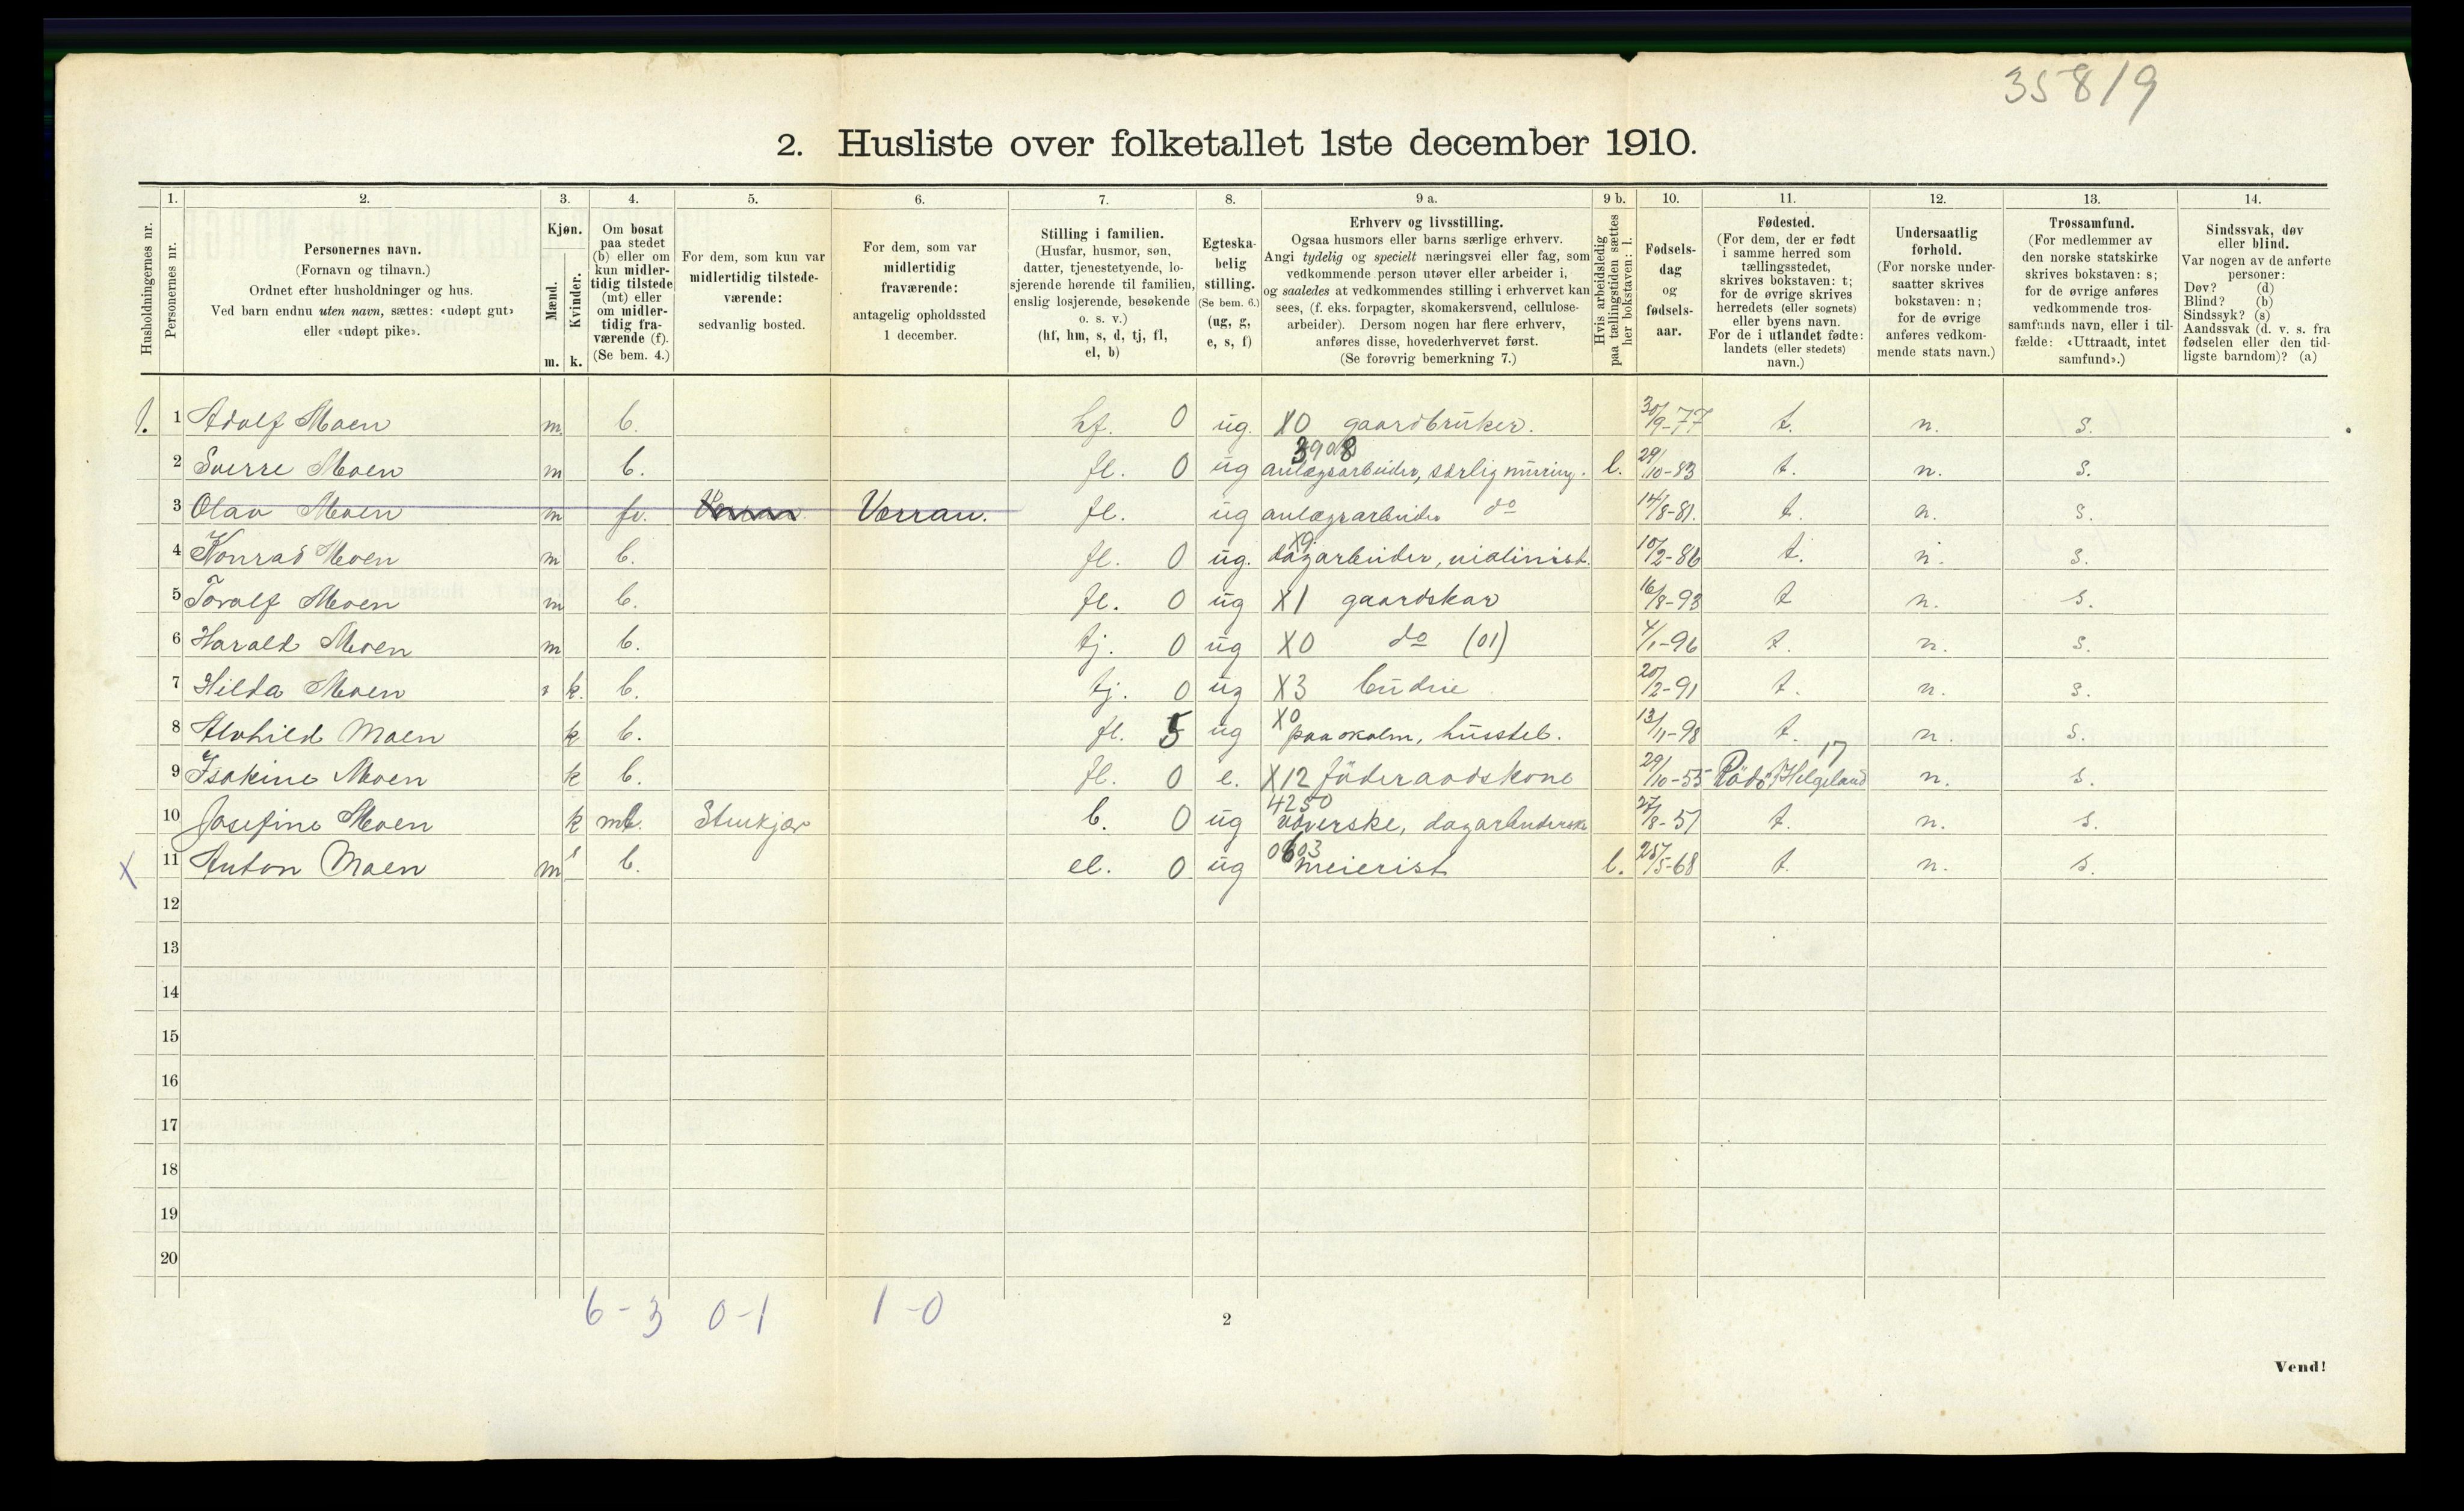 35819
2. Husliste over folketallet 1ste december 1910.
Husholdningernes nr.
1. Personernes nr.
2. Personernes navn. (Fornavn og tilnavn.) Ordnet efter husholdninger og hus. Ved barn endnu uten navn, sættes: «udøpt gut» eller «udøpt pike».
3. Kjøn. Mænd. m. Kvinder. k.
4. Om bosat paa stedet (b) eller om kun midlertidig tilstede (mt) eller om midlertidig fraværende (f). (Se bem. 4.)
5. For dem, som kun var midlertidig tilstedeværende: sedvanlig bosted.
6. For dem, som var midlertidig fraværende: antagelig opholdssted 1 december.
7. Stilling i familien. (Husfar, husmor, søn, datter, tjenestetyende, losjerende hørende til familien, enslig losjerende, besøkende o. s. v.) (hf, hm, s, d, tj, fl, el, b)
8. Egteskabelig stilling. (Se bem. 6.) (ug, g, e, s, f)
9 a. Erhverv og livsstilling. Ogsaa husmors eller barns særlige erhverv. Angi tydelig og specielt næringsvei eller fag, som vedkommende person utøver eller arbeider i, og saaledes at vedkommendes stilling i erhvervet kan sees, (f. eks. forpagter, skomakersvend, cellulosearbeider). Dersom nogen har flere erhverv, anføres disse, hovederhvervet først. (Se forøvrig bemerkning 7.)
9 b. Hvis arbeidsledig paa tællingstiden sættes her bokstaven: l.
10. Fødselsdag og fødselsaar.
11. Fødested. (For dem, der er født i samme herred som tællingsstedet, skrives bokstaven: t; for de øvrige skrives herredets (eller sognets) eller byens navn. For de i utlandet fødte: landets (eller stedets) navn.)
12. Undersaatlig forhold. (For norske undersaatter skrives bokstaven: n; for de øvrige anføres vedkommende stats navn.)
13. Trossamfund. (For medlemmer av den norske statskirke skrives bokstaven: s; for de øvrige anføres vedkommende trossamfunds navn, eller i tilfælde: «Uttraadt, intet samfund».)
14. Sindssvak, døv eller blind. Var nogen av de anførte personer: Døv? (d) Blind? (b) Sindssyk? (s) Aandssvak (d. v. s. fra fødselen eller den tidligste barndom)? (a)
1. 1 Adolf Moen m. b. hf. 0 ug. X0 gaardbruker. 30/9-77 t. n. s.
2 Sverre Moen m b. fl. 0 ug 3908 anlægsarbeider, særlig muring. l. 29/10-83 t. n. s.
3 Olav Moen m fr. Verran. fl. ug anlægsarbeider do 14/8-81. t. n. s.
4 Konrad Moen m b. fl. 0 ug. X9 dagarbeider, violinist. 10/2-86 t. n. s.
5 Toralf Moen m b. fl. 0 ug X1 gaardskar 16/8-93 t n. s.
6 Harald Moen m b. tj. 0 ug X0 do (01) 4/1-96 t. n. s.
7 Hilda Moen k. b. tj. 0 ug X3 budeie 20/2-91 t. n. s.
8 Alvhild Moen k b. fl. 5 ug X0 paa skolen, husstel. 13/11-98 t. n. s.
9 Isakine Moen k b. fl. 0 e. X12 föderaadskone 29/10-55 Rödö, Helgeland 17 n. s.
10 Josefine Moen k mt. Stenkjær b. 0 ug 4250 væverske, dagarbeiderske 27/8-57 t. n. s.
X 11 Anton Moen m b. el. 0 ug 0603 meierist l. 25/5-68 t. n. s.
12
13
14
15
16
17
18
19
20
6-3 0-1 1-0
2
Vend!